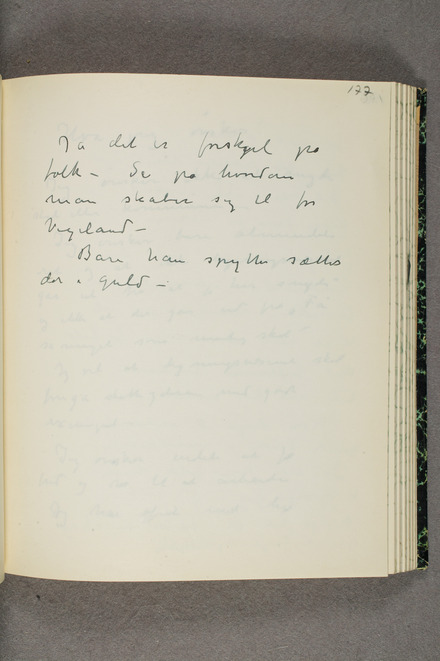 177
Ja det er forskjel på
folk – Se på hvordan
man skaber seg til for
Vigeland –
Bare han spytter sættes
der i guld –